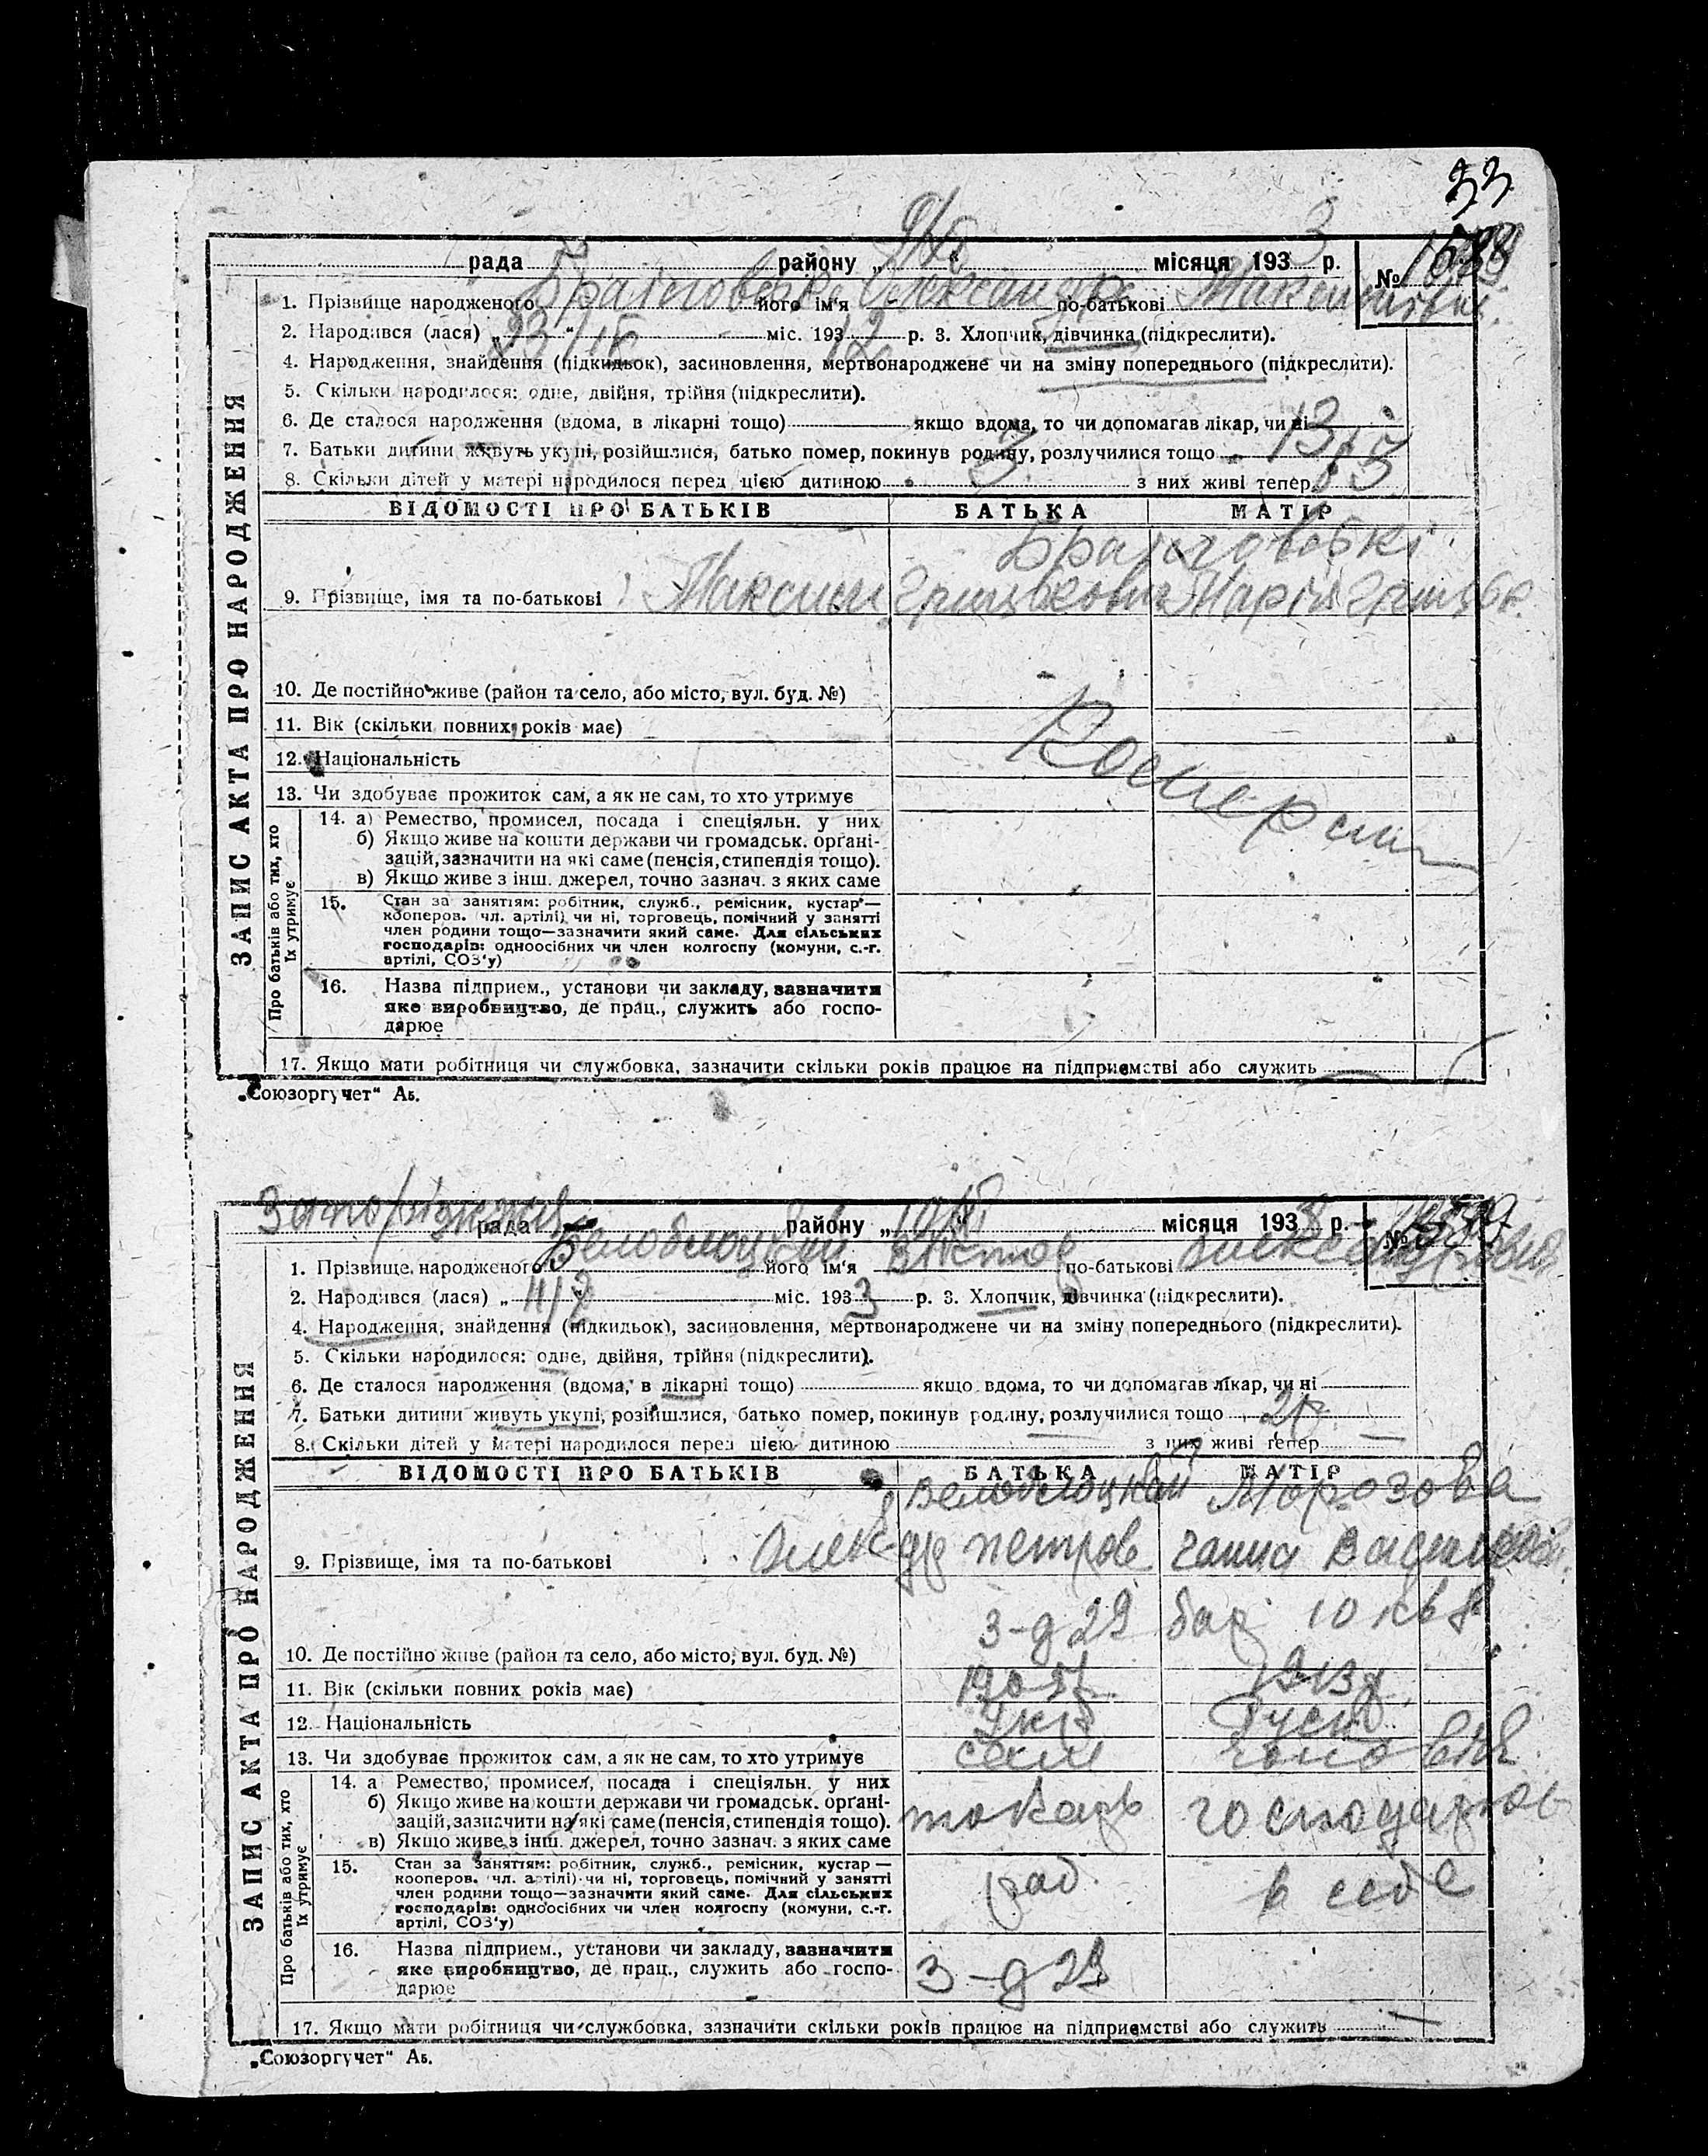 33
рада району „ “ місяця 193 3 р. №
1. Прізвище народженого його ім‘я по-батькові
2. Народився (лася) „23 “ міс. 193 2 р. 3. Хлопчик, дівчинка (підкреслити).
4. Народження, знайдення (підкидьок), засиновлення, мертвонароджене чи на зміну попереднього (підкреслити).
5. Скільки народилося: одне, двійня, трійня (підкреслити).
6. Де сталося народження (вдома, в лікарні тощо) якщо вдома, то чи допомагав лікар, чи ні
7. Батьки дитини живуть укупі, розійшлися, батько помер, покинув родину, розлучилися тощо
8. Скільки дітей у матері народилося перед цією дитиною 3 з них живі тепер 3
ЗАПИС АКТА ПРО НАРОДЖЕННЯ
ВІДОМОСТІ ПРО БАТЬКІВ БАТЬКА МАТІР
9. Прізвище, імя та по-батькові Максим Марія
10. Де постійно живе (район та село, або місто, вул. буд. №)
11. Вік (скільки повних років має)
12. Національність
13. Чи здобуває прожиток сам, а як не сам, то хто утримує
Про батьків або тих, хто їх утримує
14. а) Ремество, промисел, посада і спеціяльн. у них
б) Якщо живе на кошти держави чи громадськ. орґані-
зацій, зазначити на які саме (пенсія, стипендія тощо).
в) Якщо живе з інш. джерел, точно зазнач. з яких саме
15. Стан за заняттям: робітник, служб., ремісник, кустар —
кооперов. чл. артілі) чи ні, торговець, помічний у занятті
член родини тощо—зазначити який саме. Для сільських
господарів: одноосібних чи член колгоспу (комуни, с.-г.
артілі, СОЗ‘у)
16. Назва підприєм., установи чи закладу, зазначити
яке виробництво, де прац., служить або госпо-
дарює
17. Якщо мати робітниця чи службовка, зазначити скільки років працює на підприємстві або служить
„Союзоргучет“ Аб.
рада району „ “ місяця 193 3 р. №
1. Прізвище народженого його ім‘я Віктор по-батькові
2. Народився (лася) „ міс. 193 3 р. 3. Хлопчик, дівчинка (підкреслити).
4. Народження, знайдення (підкидьок), засиновлення, мертвонароджене чи на зміну попереднього (підкреслити).
5. Скільки народилося: одне, двійня, трійня (підкреслити).
6. Де сталося народження (вдома, в лікарні тощо) якщо вдома, то чи допомагав лікар, чи ні
7. Батьки дитини живуть укупі, розійшлися, батько помер, покинув родину, розлучилися тощо
8. Скільки дітей у матері народилося перед цією дитиною з них живі тепер —
ЗАПИС АКТА ПРО НАРОДЖЕННЯ
ВІДОМОСТІ ПРО БАТЬКІВ БАТЬКА МАТІР
Морозова
9. Прізвище, імя та по-батькові Ганна
3-д 29 бар 10 кв 8
10. Де постійно живе (район та село, або місто, вул. буд. №)
11. Вік (скільки повних років має) 1913
12. Національність укр руск
13. Чи здобуває прожиток сам, а як не сам, то хто утримує сам
Про батьків або тих, хто їх утримує
14. а Ремество, промисел, посада і спеціяльн. у них
б) Якщо живе на кошти держави чи громадськ. орґані-
зацій, зазначити на які саме (пенсія, стипендія тощо). токарь
в) Якщо живе з інш. джерел, точно зазнач. з яких саме
15. Стан за заняттям: робітник, служб., ремісник, кустар —
кооперов. чл. артілі) чи ні, торговець, помічний у занятті
член родини тощо—зазначити який саме. Для сільських
господарів: одноосібних чи член колгоспу (комуни, с.-г.
артілі, СОЗ‘у)
роб в себе
16. Назва підприєм., установи чи закладу, зазначити
яке виробництво, де прац., служить або госпо-
дарює
3-д 29
17. Якщо мати робітниця чи службовка, зазначити скільки років працює на підприємстві або служить —
„Союзоргучет“ Аб.